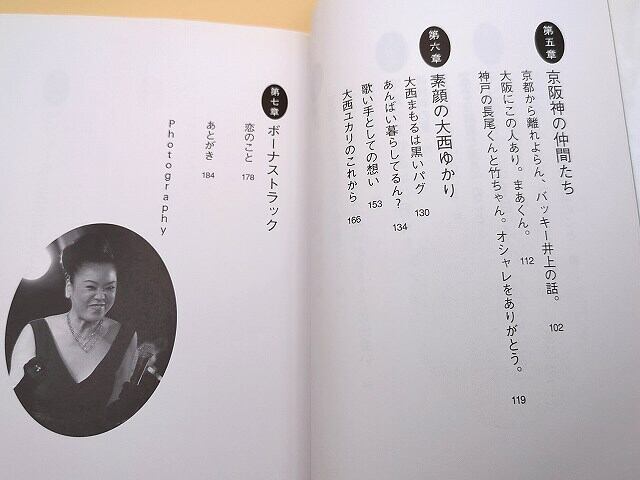 第五章 京阪神の仲間たち
京都から離れよらん、バッキー井上の話。 102
大阪にこの人あり。まあくん。 112
神戸の長尾くんと竹ちゃん。オシャレをありがとう。 119
第六章 素顔の大西ゆかり
大西まもるは黒いパグ 130
あんばい暮らしてるん? 134
歌い手としての想い 153
大西ユカリのこれから 166
第七章 ボーナストラック
恋のこと 178
あとがき 184
Photography